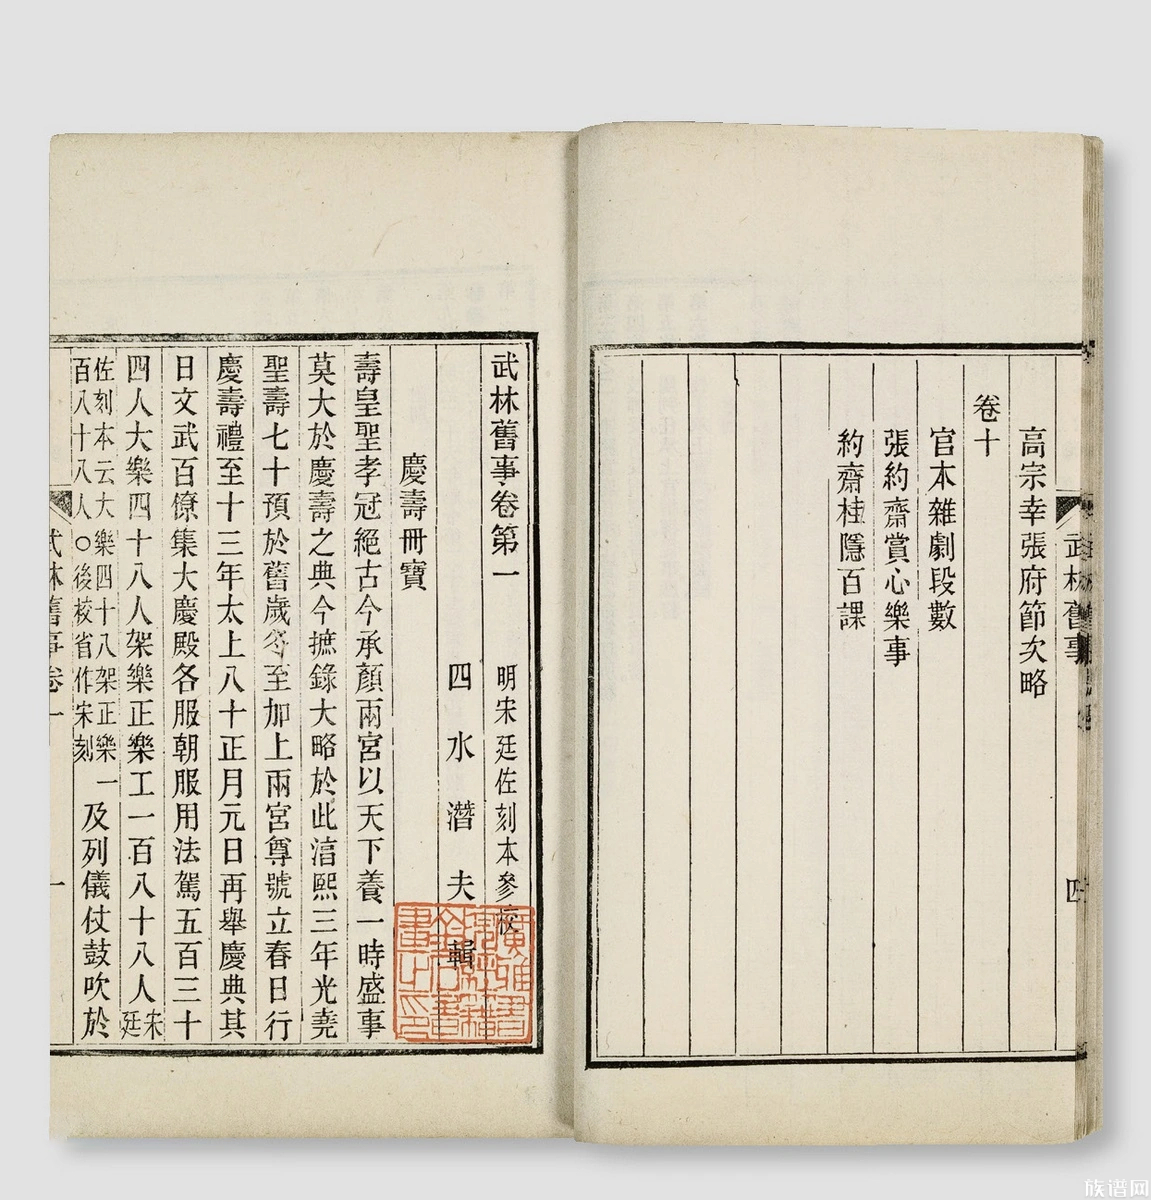 高宗幸張府節次略
卷十
官本雜劇段數
張約齋賞心樂事
約齋桂隱百課
武林舊事
四
武林舊事卷第一
明宋廷佐刻本參校
四水潛夫輯
慶壽冊寶
壽皇聖孝冠絕古今承顏兩宮以天下養一時盛事
莫大於慶壽之典今摭錄大略於此淳熙三年光堯
聖壽七十預於舊歲冬至加上兩宮尊號立春日行
慶壽禮至十三年太上八十正月元日再舉慶典其
日文武百僚集大慶殿各服朝服用法駕五百三十
四人大樂四十八人架樂正樂工一百八十八人宋廷
佐刻本云大樂四十八架正樂一百八十八人○後校省作宋刻及列儀仗鼓吹於
武林舊事卷一
一
族谱网